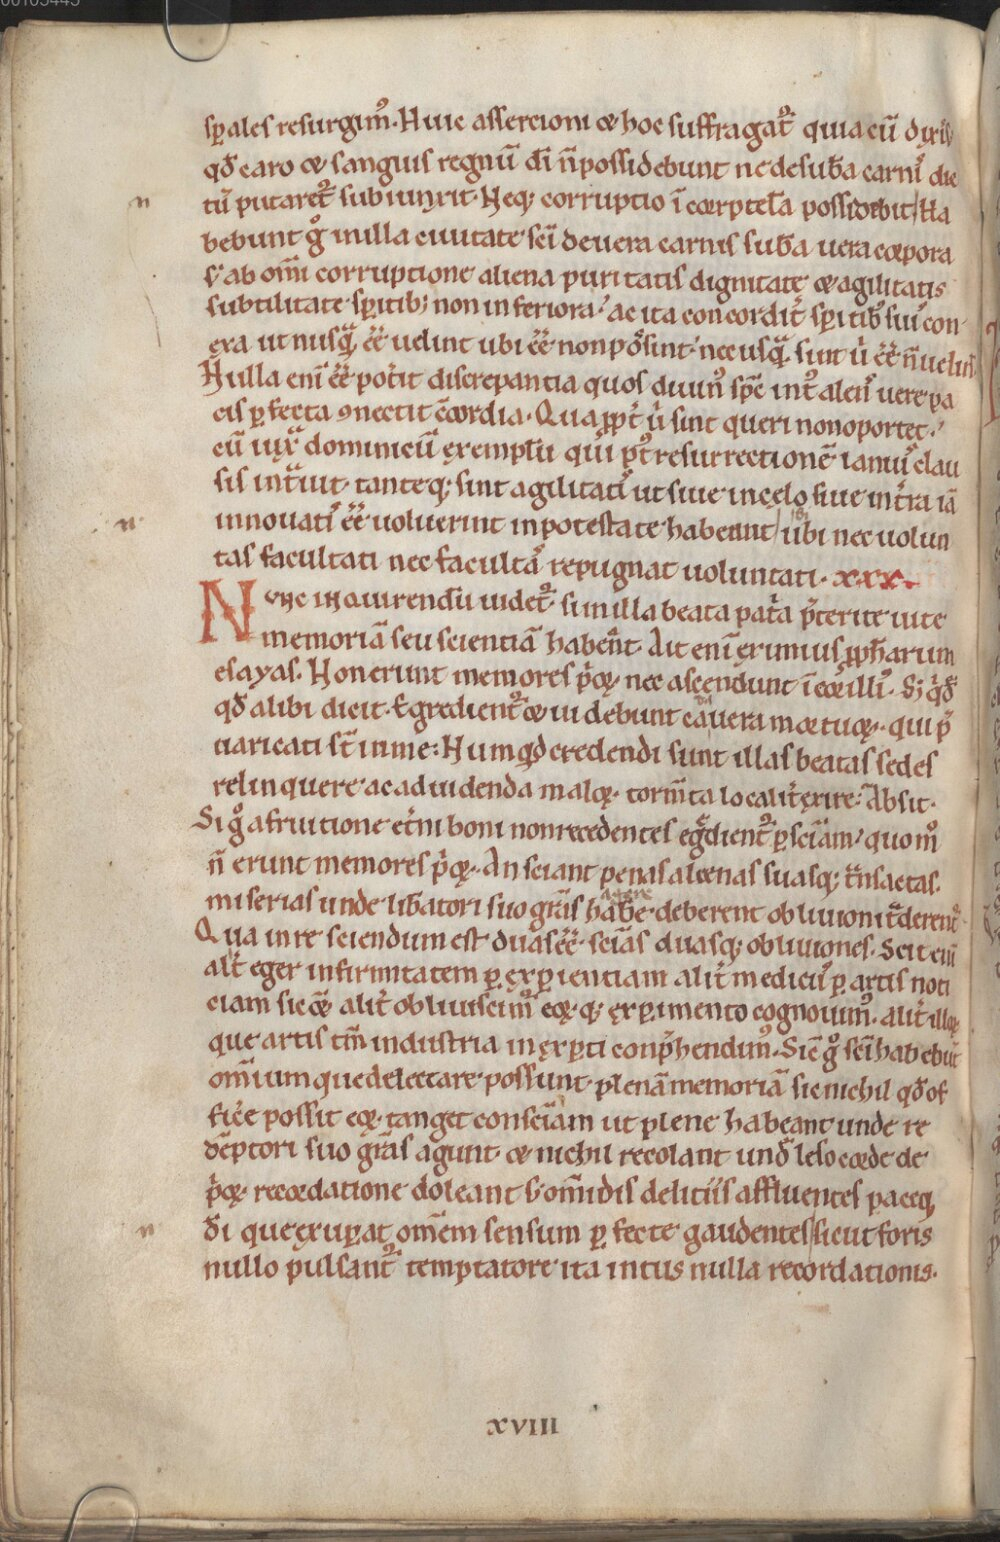 00105445
sp̄ales resurgim᷒. Huic assercioni & hoc suffragat᷒ quia cū dixis
qđ caro & sanguis regnū dī n̄ possidebunt ne de sub̄a carnis dic
tū putaret᷒ subiunxit. Neq; corruptio īcorptelā possidebit / Ha
bebunt g̊ in illa ciuitate sc̄i de uera carnis sub̄a uera corpora
s; ab om̄i corruptione aliena puritatis dignitate & agilitatis
subtilitate sp̄itib; non inferiora. ac ita concordit̄ sp̄itib; suis con
exa ut nusq̄ ēē uelint ubi ēē non pos̄sint. nec usq̄ sint ū ēē n̄ uelint
Nulla enī ēē pot̄it discrepantia quos diuin᷒ sp̄c int᷒ alcis uere pa
cis p̱fecta ꝯnectit c̄cordia. Quapp̄t ū sint queri non oportet.
cū iux̄ dominicū exemplū qui p᷒t resurrectionē ianuis clau
sis int̄uit. tanteq; sint agilitatis ut siue in celo siue in t̄ra iā
innouati ēē uoluerint in potestate habeant / ubi nec uolun
tas facultati nec facultas repugnat uoluntati. xxx.
Nunc inquirendū uidet᷒ si in illa beata pat̄a p̄terite uite
memoriā seu scientiā habent. Ait enī eximius pp̄harum
esayas. Non erunt memores p̄oꝝ nec ascendunt ī cor illis. S; q̄d
qđ alibi dicit. Egredient᷒ & uidebunt cadauera mortuoꝝ. qui p̄
uaricati st̄ in me: Numqđ credendi sunt illas beatas sedes
relinquere ac ad uidenda maloꝝ. torm̄ta localit̄ exire: Absit.
Si g̊ a fruitione et̄ni boni non recedentes eg̊dient᷒ p̱ sciam / quom̊
n̄ erunt memores p̄oꝝ. An sciant penas alienas suasq; t̄nsactas
miserias unde lib̄atori suo grās hab̄e agere deberent obliuioni t̄derent᷒
Qua in re sciendum est duas ēē scīas duasq; obliuiones. Scit enī
alit̄ eger infirmitatem p̱ exp̱ientiam alit̄ medicus p̱ artis noti
ciam sic & alit̄ obliuiscim᷒ eoꝝ. q; exp̱imento cognouim᷒. alit̄ illoꝝ
que artis tm̄ industria inexp̱ti conp̄hendim᷒. Sic g̊ sc̄i habebūt
om̄ium que delectare possunt. plenā memoriā sic nichil qđ of
fic̄e possit eoꝝ. tanget consciām ut plene habeant unde re
dēptori suo grās agunt. & nichil recolant und̄ leso corde de
p̄oꝝ. recordatione doleant s; om̄idis delitiis affluentes paceq,
d̄i que exup̱at om̄em sensum p̱fecte gaudentes / sicut foris
nullo pulsant᷒ temptatore ita intus nulla recordationis.
XVIII